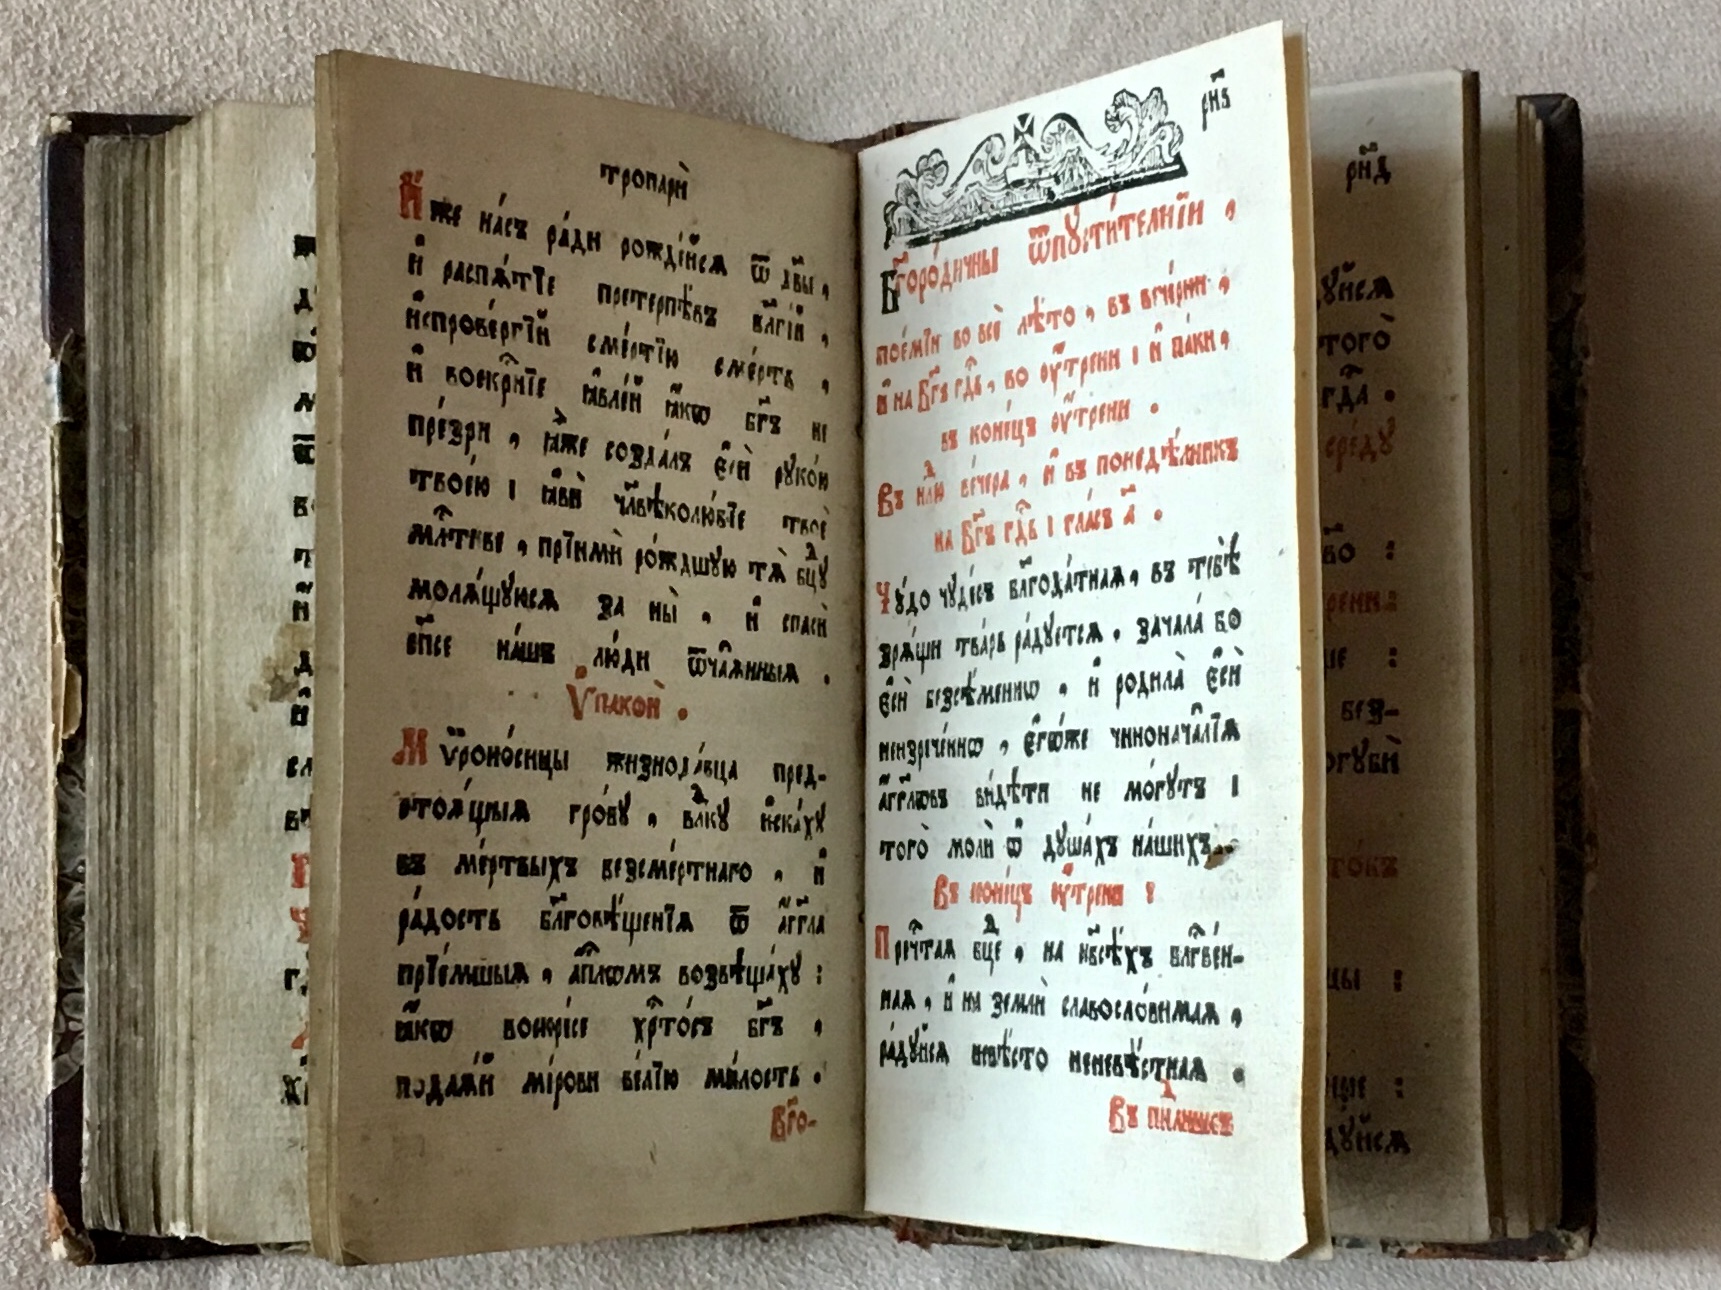 тропарѝ
И҆́же на́съ ра́ди рожде́йсѧ ѿ дв҃ы,
и҆ распѧ́тїе претерпѣ́въ бл҃гі́й,
и҆спрове́ргїй сме́ртїю сме́рть,
и҆ воскр҇нїе ꙗ҆вле́й ꙗ҆́кѡ бг҃ъ не
пре́зри, ꙗ҆̀же созда́лъ є҆сѝ руко́ю
твое́ю: ꙗ҆вѝ чл҃вѣколю́бїе твоѐ
мл҇тиве, прїимѝ ро́ждшую тѧ̀ бц҃ꙋ
молѧ́щуюсѧ за ны̀, и҆ спасѝ
сп҃се на́шъ лю́ди ѿча́ѧнныѧ.
Ѵ҆пакоѝ.
Мѷроно́сицы жизнода́вца пред-
стоѧ́щыѧ гро́бꙋ, влⷣкꙋ и҆ска́хꙋ
въ ме́ртвыхъ безсме́ртнаго, и҆
ра́дость бл҃говѣ́щенїѧ ѿ а҆́гг҃ла
прїе́мшыѧ, а҆п҇лѡмъ возвѣща́хꙋ:
ꙗ҆́кѡ воскре́се хр҇то́съ бг҃ъ,
пода́ѧй мі́рови ве́лїю ми́лость.
Бг҃о-
рн҃г
Бг҃оро́дичны ѿпꙋсти́телнїи,
пое́мїи во всѐ лѣ́то, въ вече́рни,
и҆ на бг҃ъ гд҇ь, во ѹ҆́трени: и҆ па́ки,
въ коне́цъ ѹ҆́трени.
Въ нлⷣю ве́чера, и҆ въ понедѣ́лникъ
на бг҃ъ гд҇ь: гла́съ а҃.
Чꙋ́до чꙋде́съ бл҃года́тнаѧ, въ тебѣ̀
зрѧ́щи тва́рь ра́дꙋетсѧ, зачала́ бо
є҆сѝ безсѣ́меннѡ, и҆ родила̀ є҆сѝ
неизрече́ннѡ, є҆гѡ́же чинонача҇лїѧ
а҆́гг҃лѡвъ ви́дѣти не мо́гꙋтъ:
того̀ молѝ ѡ҆ дꙋша́хъ на́шихъ.
Въ коне́цъ ѹ҆́трени:
Пречт҇аѧ бцⷣе, на нб҃сѣ́хъ блг҇ве́н-
наѧ, и҆ на землѝ славосло́вимаѧ,
ра́дꙋйсѧ невѣ́сто неневѣ́стнаѧ.
Въ пнⷣлншеъ
рн҃д
дꙋйсѧ
того̀
гд҇а.
сре́дꙋ
трени:
ше:
без-
огꙋбѝ
то́къ
цы:
ные:
дꙋйсѧ